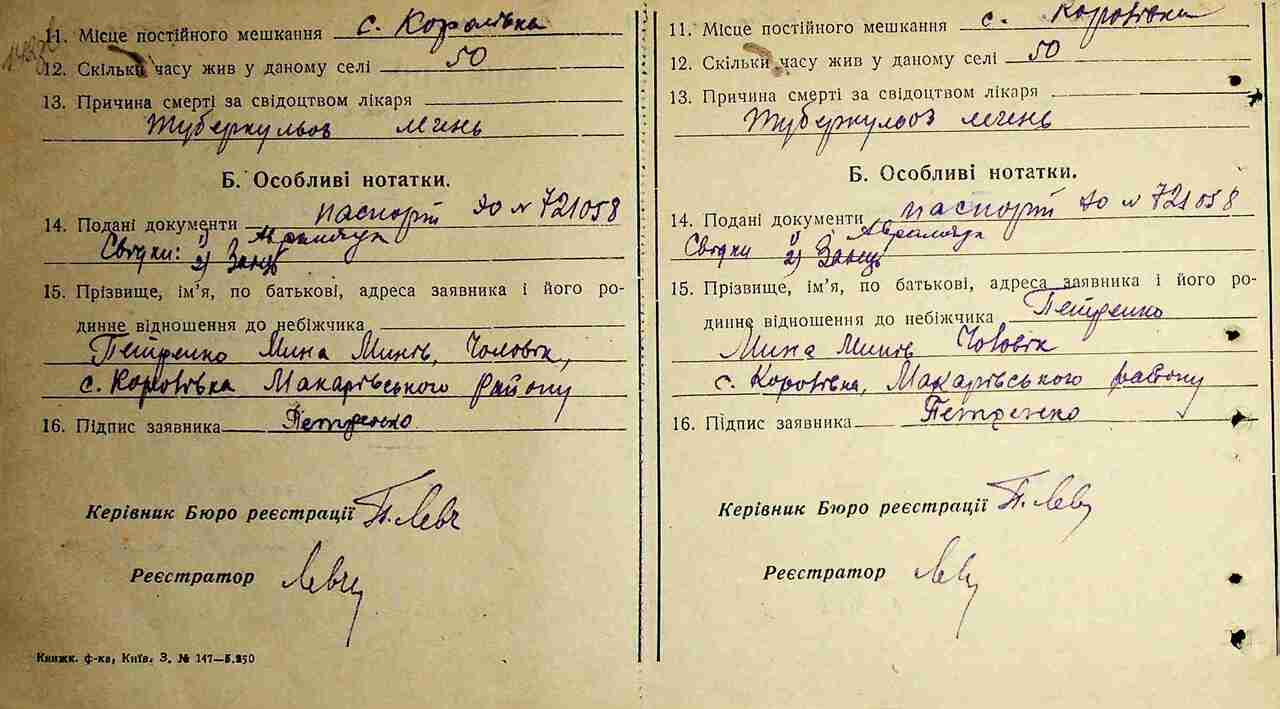 11. Місце постійного мешкання с. Королівка
12. Скільки часу жив у даному селі 50
13. Причина смерті за свідоцтвом лікаря
Туберкульоз легень
Б. Особливі нотатки.
14. Подані документи паспорт № 721058
Свідки: 1) Аврамчук
2) Заєць
15. Прізвище, ім'я, по батькові, адреса заявника і його ро-
динне відношення до небіжчика
Петренко Мина Минів, Чоловік,
с. Королівка Макарівського району
16. Підпис заявника Петренко
Керівник Бюро реєстрації П. Левч
Реєстратор
Книжк. ф-ка, Київ. З. № 147—5.250
11. Місце постійного мешкання с. Королівка
12. Скільки часу жив у даному селі 50
13. Причина смерті за свідоцтвом лікаря
Туберкульоз легень
Б. Особливі нотатки.
14. Подані документи паспорт № 721058
Свідки 1) Аврамчук
2) Заєць
15. Прізвище, ім'я, по батькові, адреса заявника і його ро-
динне відношення до небіжчика Петренко
Мина Минів Чоловік
с. Королівка, Макарівського району
16. Підпис заявника Петренко
Керівник Бюро реєстрації
Реєстратор